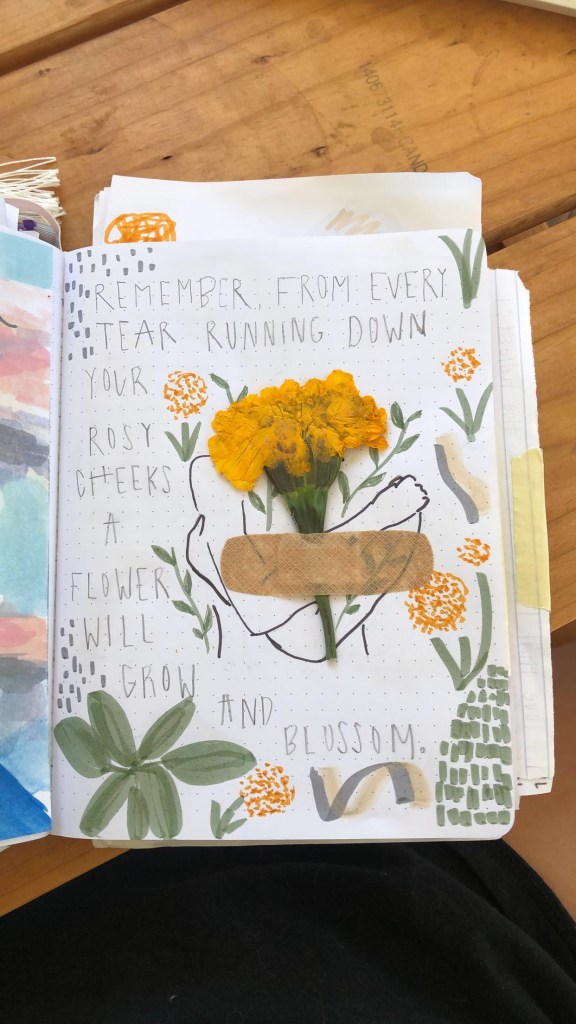 REMEMBER, FROM EVERY
TEAR RUNNING DOWN
YOUR
ROSY
CHEEKS
A
FLOWER
WILL
GROW
AND
BLOSSOM.